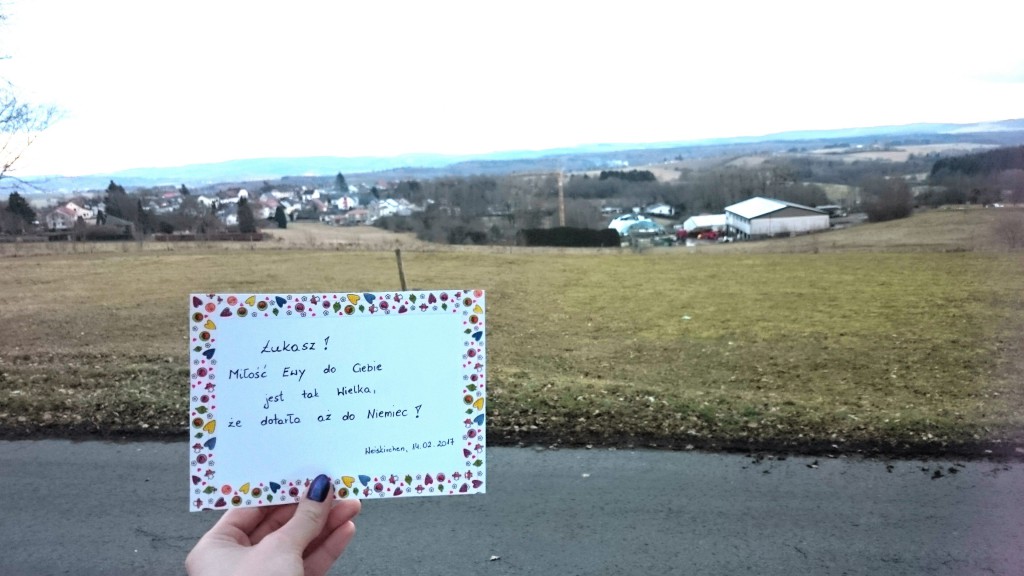 Łukasz!
Miłość Ewy do Ciebie
jest tak Wielka,
że dotarła aż do Niemiec!
Weiskirchen, 14.02.2017